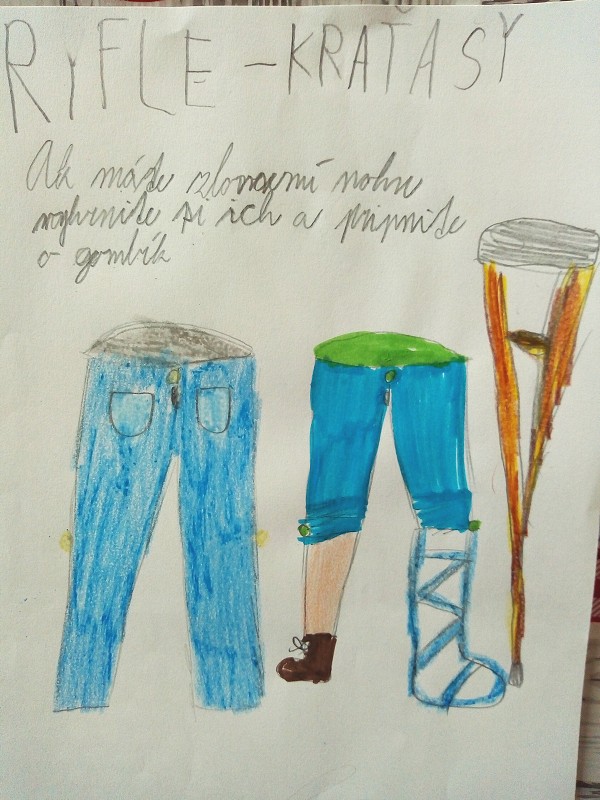 RYFLE - KRAŤASY
Ak máte zlomenú nohu
vyhrnite si ich a pripnite
o gombík